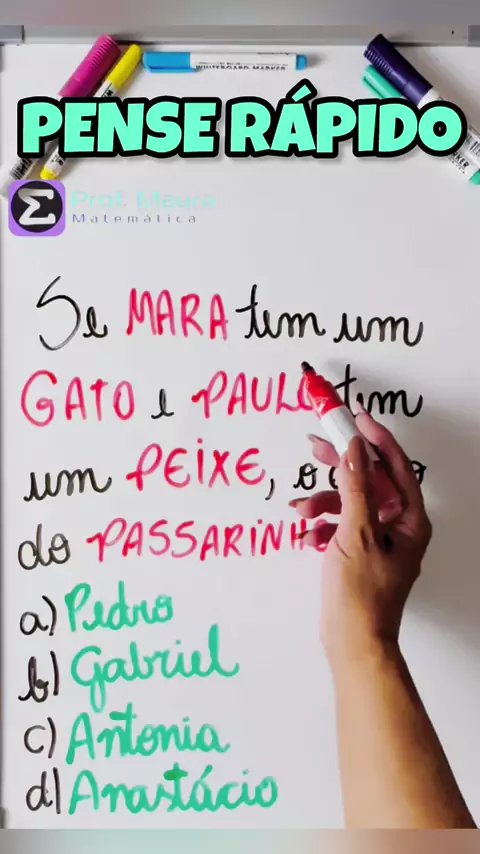 PENSE RÁPIDO
Prof. Maura
Matemática
Se MARA tem um
GATO e PAULO tem
um PEIXE,
do PASSARINHO
a) Pedro
b) Gabriel
c) Antonia
d) Anastácio